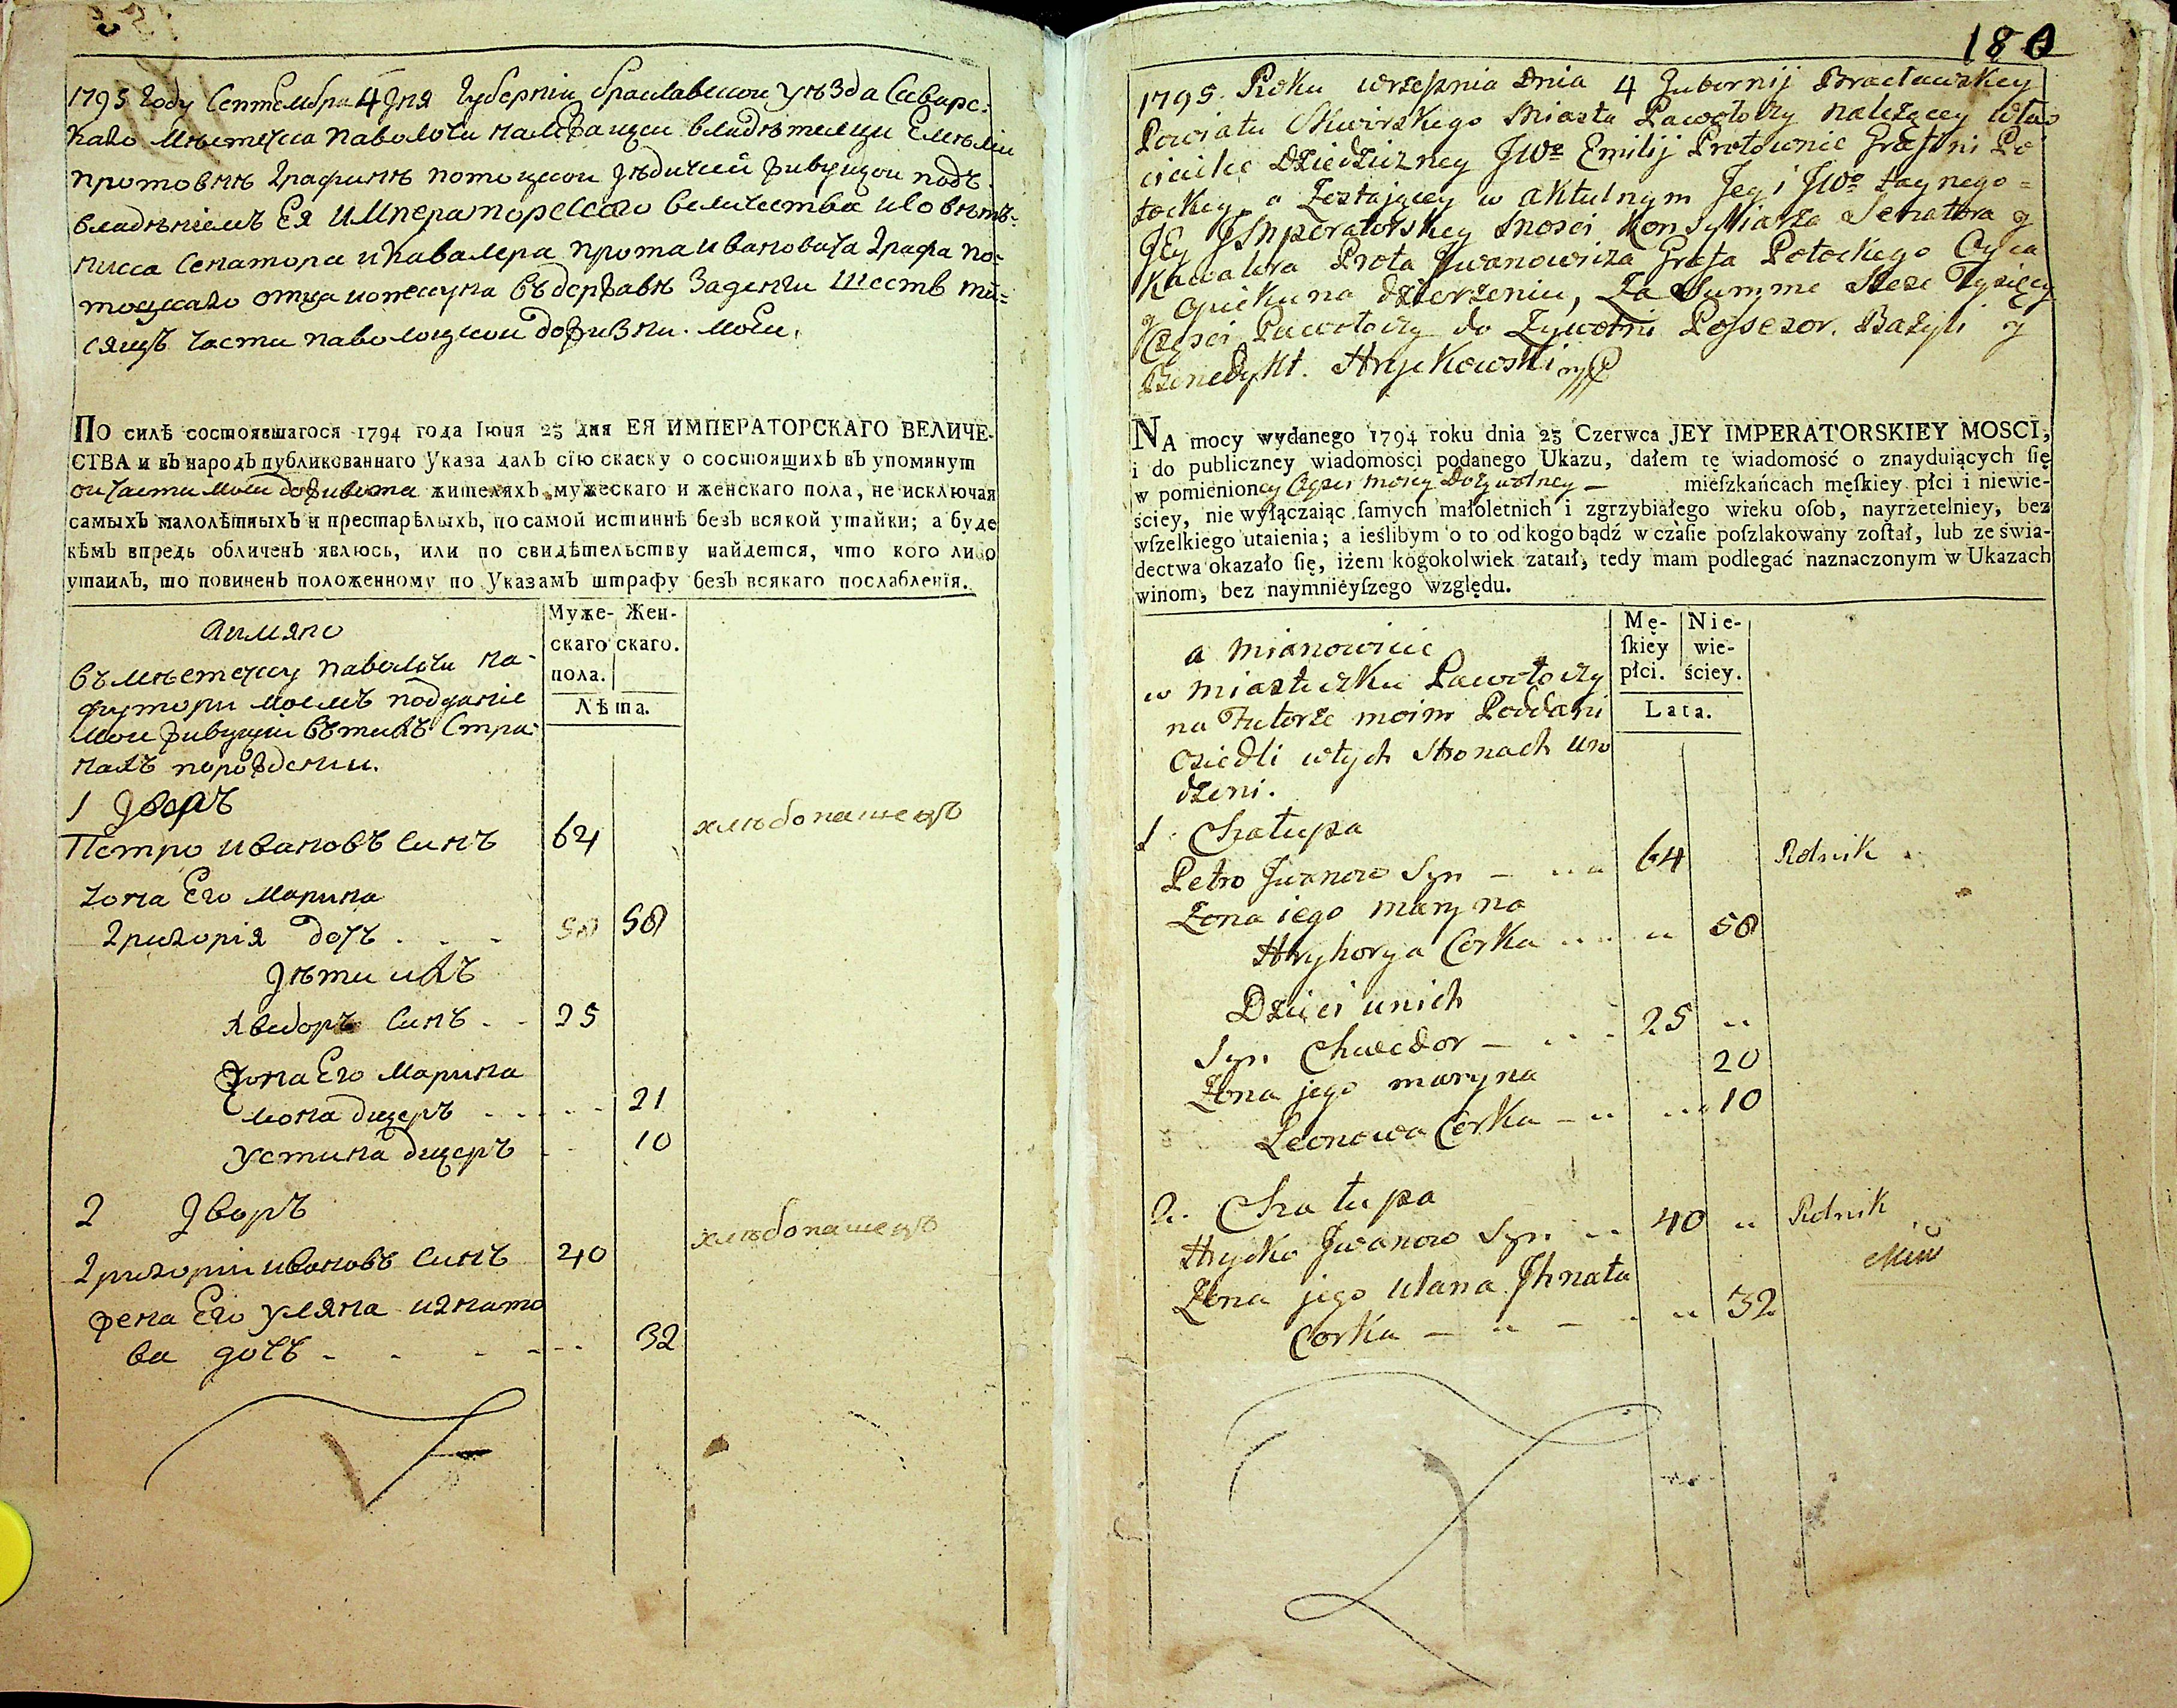 1795 году Септембра 4 дня Губернии браславской уезда Сквирс-
каго местечка паволочи належащей владетелци Емилии
протовне Графине потоцкой дедичней живущой подъ
владениемъ Ея Императорскаго величества и совет-
ника Сенатора и кавалера прота Ивановича Графа по-
тоцкаго отца и опекуна въ державе за денги шесть ти-
сяцъ части паволоцкой дожизни моей.
ПО силѣ состоявшагося 1794 года Іюня 23 дня ЕЯ ИМПЕРАТОРСКАГО ВЕЛИЧЕ-
СТВА и въ народъ публикованнаго Указа далъ сїю скаску о состоящихъ въ упомянут
ой части моей доживота жителяхъ мужескаго и женскаго пола, не исключая
самыхъ малолѣтныхъ и престарѣлыхъ, по самой истиннѣ безъ всякой утайки; а буде
кѣмъ впредь обличенъ явлюсь, или по свидѣтельству найдется, что кого либо
утаилъ, то повиненъ положенному по Указамъ штрафу безъ всякаго послабленїя.
Муже- Жен-
скаго скаго.
пола.
Лѣта.
аимяно
въ местечку паволочи на
футори моемъ подданіе
мои живущіи въ тихъ стра-
нахъ порождении.
1 дворъ
Петро ивановъ синъ 64 хлебопашецъ
жона Его марина
Григорія дочъ . . . 58 58
дети ихъ
хведоръ синъ . . 25
жона Его марина
леона дщеръ . . . . 21
устина дщеръ . . 10
2 дворъ
Григории ивановъ синъ 40 хлебопашецъ
жена Его уляна игнато
ва дочъ - - - - - 32
180
1795 Roku września Dnia 4 Gubernij Bracławskiey
Powiatu Skwirskiego Miasta Pawołoczy należącey Właś
cicielce Dziedziczney JWe Emilij Protownie Grafini Po
tockiey a Zostającey w aktulnym Jey i JWo taynego
Jey Jmperatorskiey Mości Konsyliarza Senatora y
Kawalera Prota Jwanowicza Grafa Potockiego Oyca
y Opiekuna dzierżeniu, Za Summe Sześć Tysięcy
Części Pawołoczy do Zywotni Possesor. Bazyli y
Benedykt. Hryckowski
NA mocy wydanego 1794 roku dnia 23 Czerwca JEY IMPERATORSKIEY MOSCI,
i do publiczney wiadomości podanego Ukazu, dałem tę wiadomość o znayduiących ſię
w pomienioney Części moiey Dożywotney — mieſzkańcach męſkiey płci i niewie-
ściey, nie wyłączaiąc ſamych małoletnich i zgrzybiałego wieku oſob, nayrzetelniey, bez
wſzelkiego utaienia; a ieślibym o to od kogo bądź w czàſie poſzlakowany zoſtał, lub ze świa-
dectwa okazało ſię, iżem kogokolwiek zataił, tedy mam podlegać naznaczonym w Ukazach
winom, bez naymnieyſzego względu.
Mę- Nie-
ſkiey wie-
płci. ściey.
Lata.
a mianowicie
w miasteczku Pawołoczy
na Futorze moim Poddani
Osiedli w tych stronach uro
dzeni.
1. Chałupa
Petro Jwanow Syn — .. 64 Rolnik
Zona iego maryna
Hryhorya Corka .. .. .. 58
Dzieci unich
Syn Chwedor — . . . 25 ..
Zona jego maryna 20
Leonowa Corka — .. .. 10
2. Chałupa
Hrycko Jwanow Syn .. 40 .. Rolnik
Zona jego ulana Jhnata
Corka — .. — . .. 32